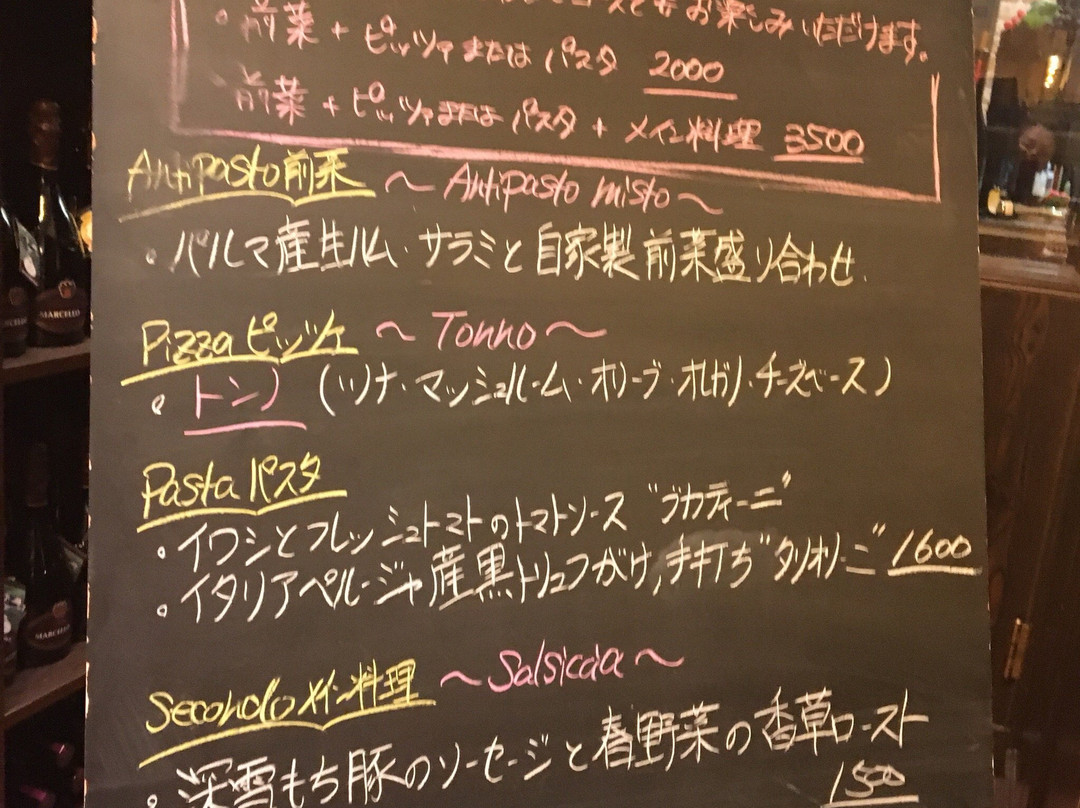 お楽しみいただけます。
・前菜 + ピッツァまたは パスタ 2000
・前菜 + ピッツァまたは パスタ + メイン料理 3500
Antipasto前菜 ～ Antipasto misto ～
・パルマ産生ハム・サラミと自家製前菜盛り合わせ
Pizzaピッツァ ～ Tonno ～
・トンノ (ツナ・マッシュルーム・オリーブ・オレガノ・チーズベース)
Pastaパスタ
・イワシとフレッシュトマトのトマトソース "ブカティーニ"
・イタリアペルージャ産黒トリュフがけ,手打ち"タリオリーニ" 1600
Secondoメイン料理 ～Salsiccia～
・深雪もち豚のソーセージと春野菜の香草ロースト
1500
MARCELLO
MARCELLO